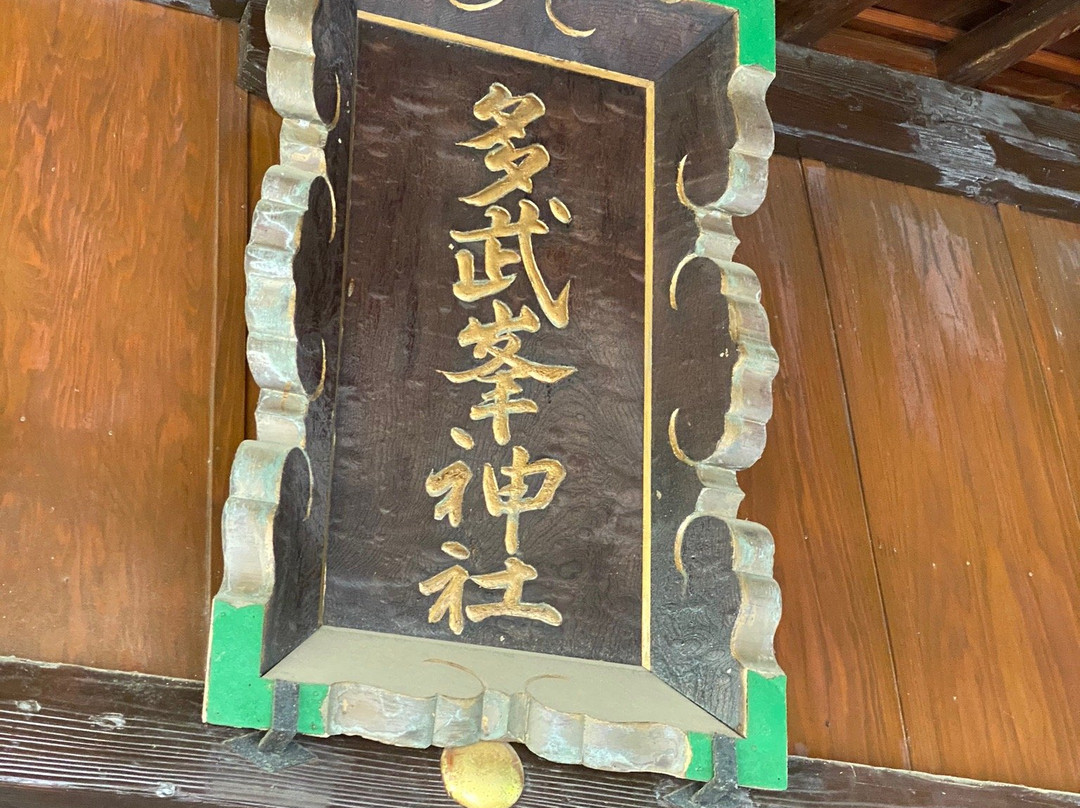 多武峯神社